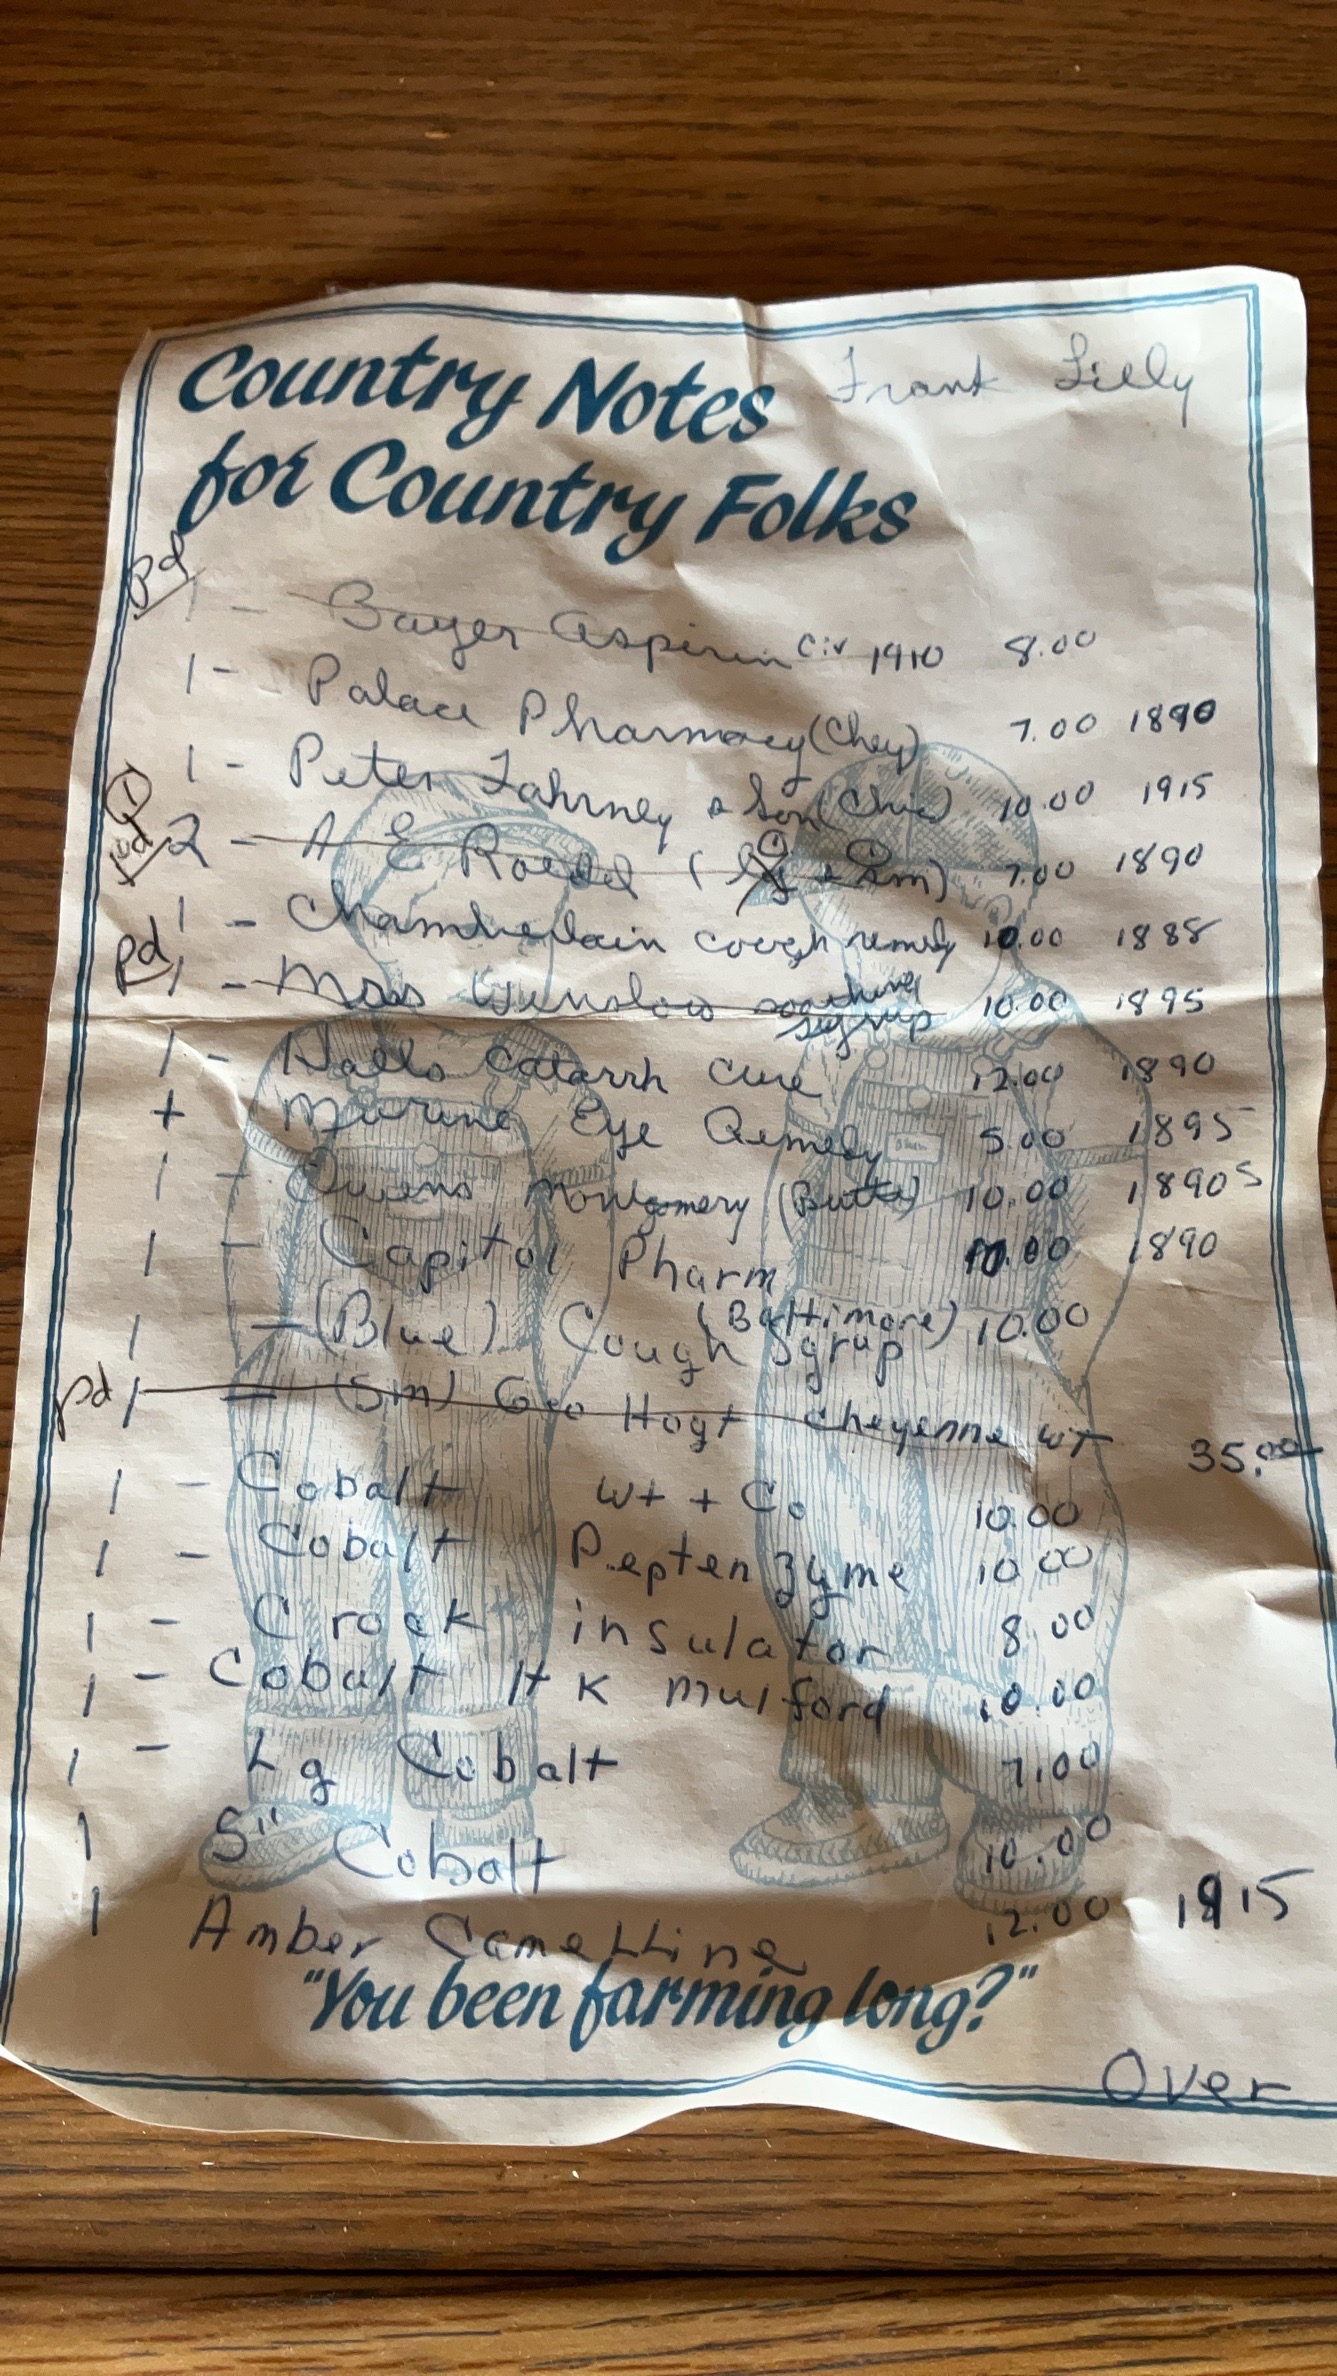 Country Notes
for Country Folks
Frank Lilly
pd 1 - Bayer Aspirin Cir 1910 8.00
1 - Palace Pharmacy (Chey) 7.00 1890
1 - Peter Fahrney & Son (Chic) 10.00 1915
pd 2 - A E Roedel (lg + Sm) 7.00 1890
1 - Chamberlain cough remedy 10.00 1888
pd 1 - Mrs Winslow soothing syrup 10.00 1895
1 - Halls Catarrh Cure 12.00 1890
+ Murine Eye Remedy 5.00 1895
1 - Owens Montgomery (Butte) 10.00 1890s
1 - Capitol Pharm 10.00 1890
1 - (Blue) Cough Syrup (Baltimore) 10.00
pd 1 - (Sm) Geo Hoyt Cheyenne WT 35.00
1 - Cobalt Wt + Co 10.00
1 - Cobalt Peptenzyme 10.00
1 - Crock insulator 8.00
1 - Cobalt H K Mulford 10.00
1 - Lg Cobalt 7.00
1 5" Cobalt 10.00
1 Amber Camelline 12.00 1915
"You been farming long?"
Over